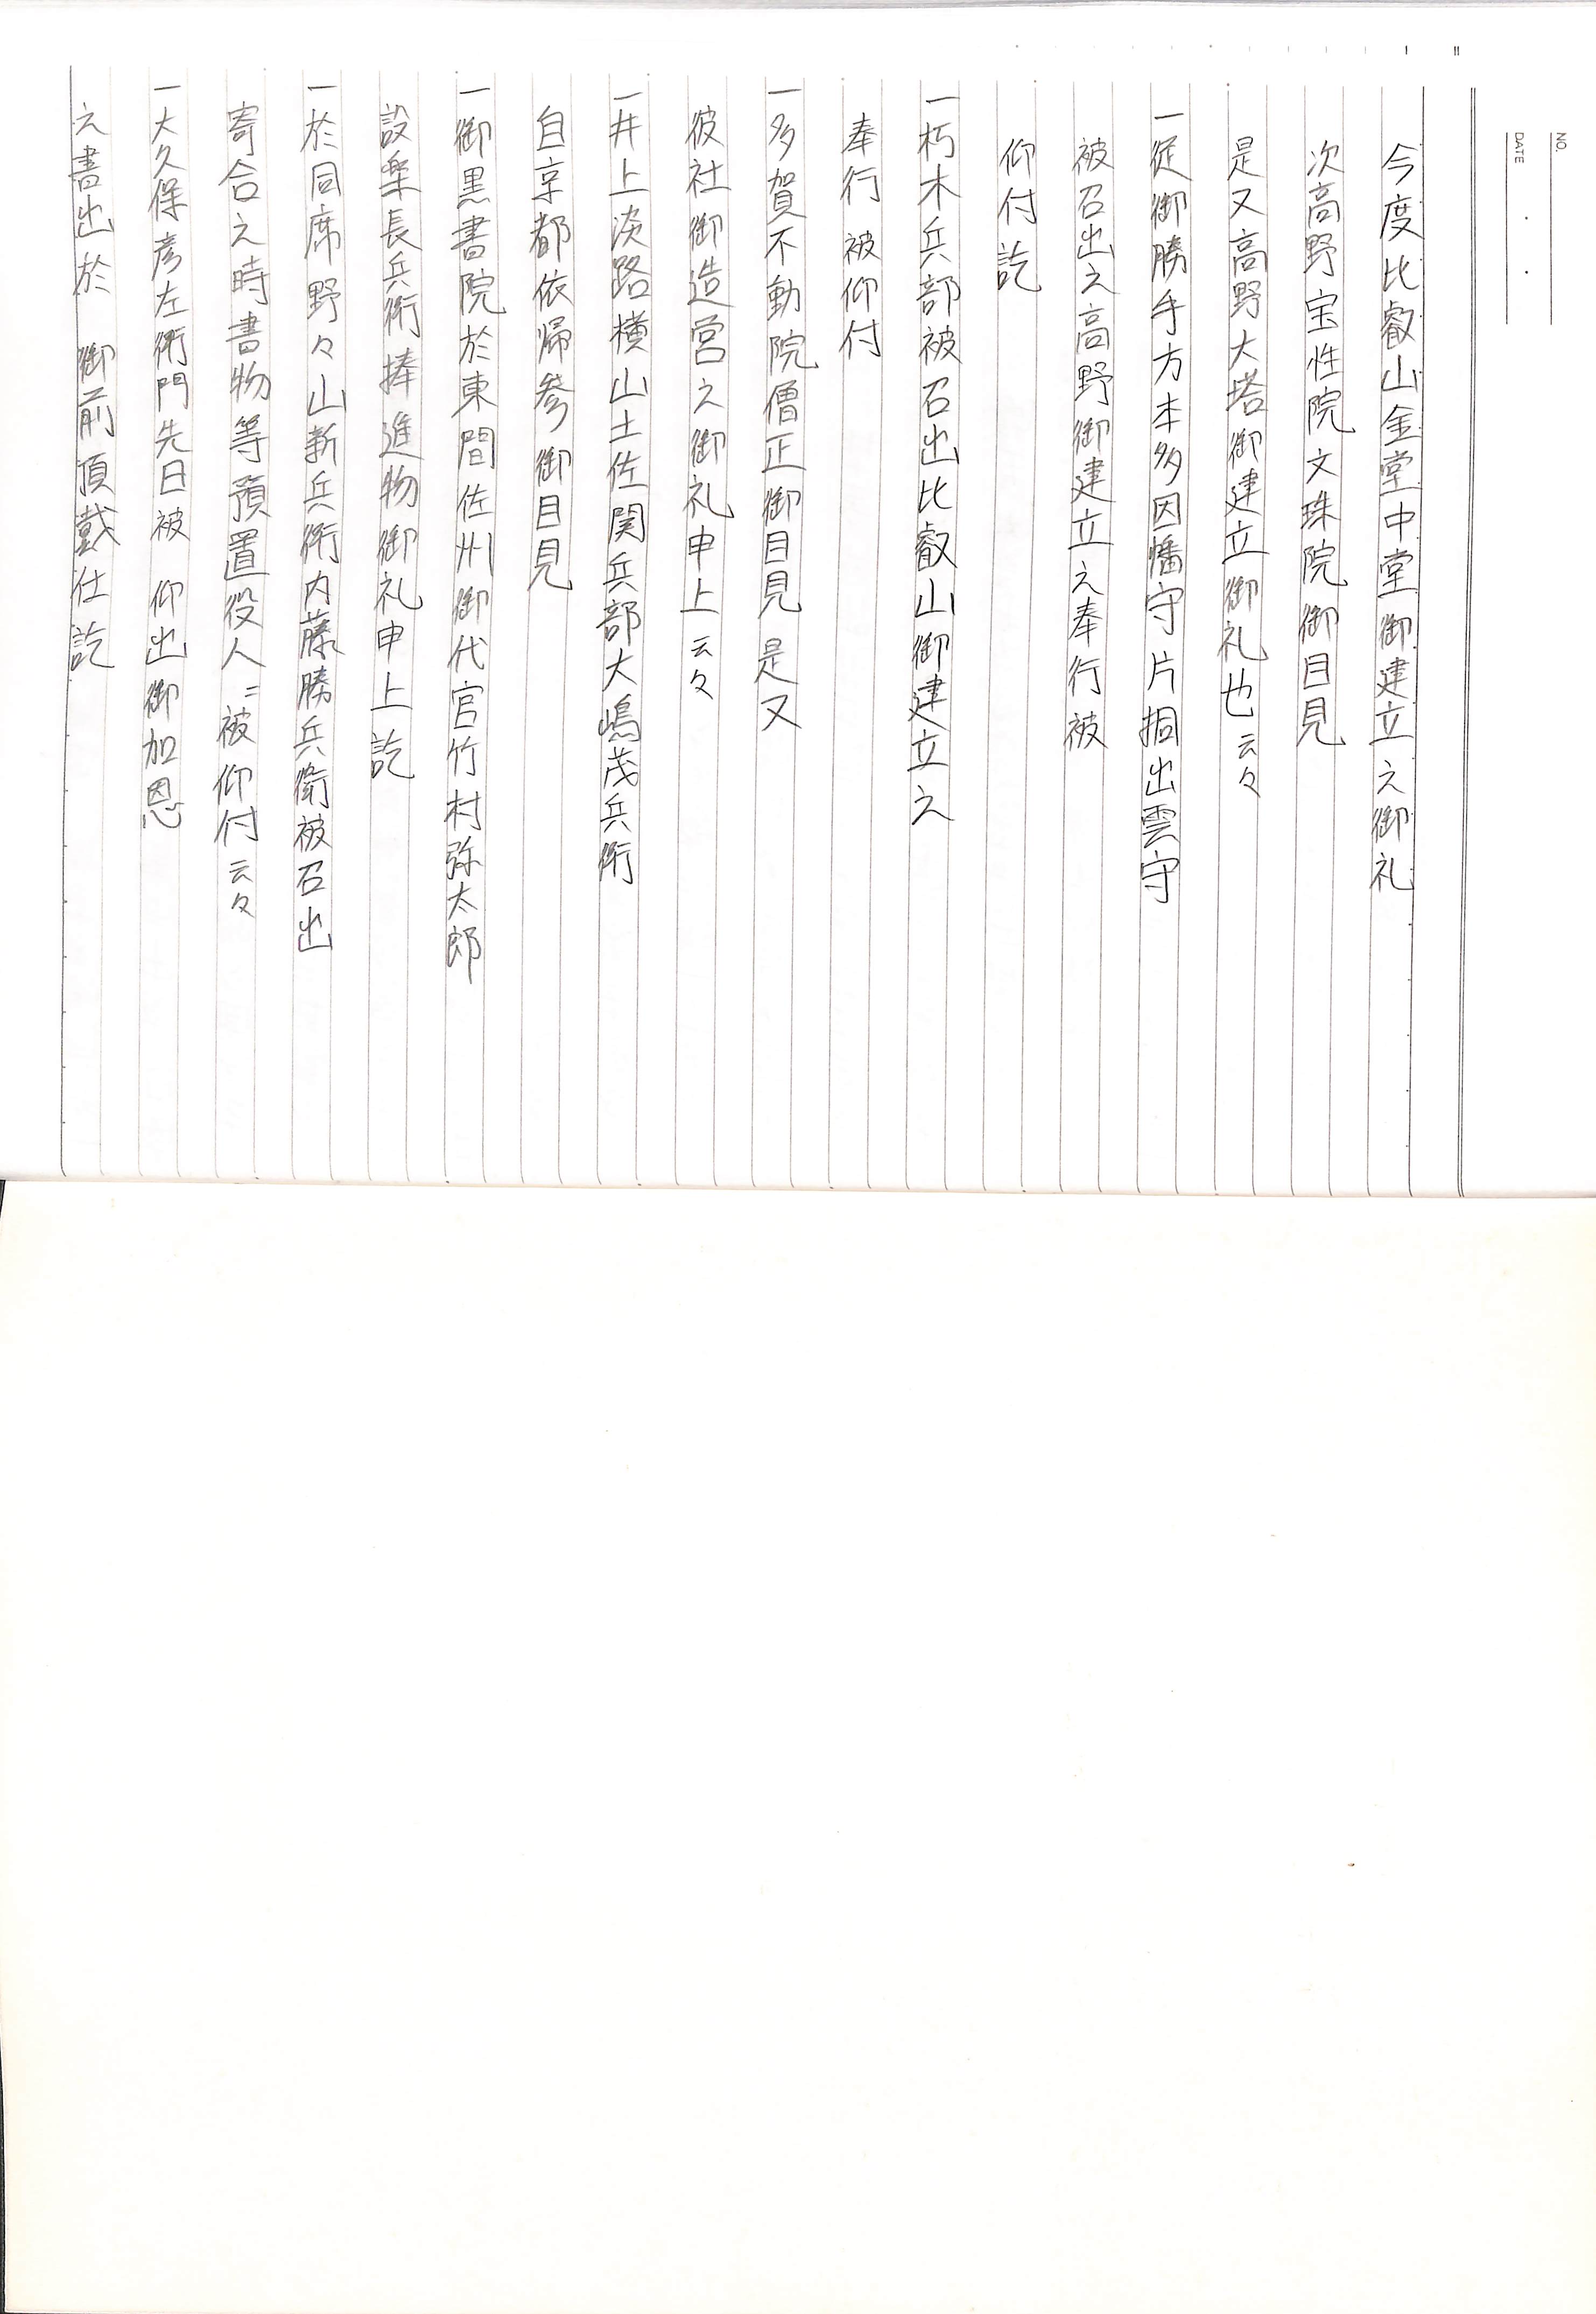 NO.
DATE
今度比叡山金堂中堂御建立之御礼
次高野宝性院文珠院御目見
是又高野大塔御建立御礼也云々
一従御勝手方本多因幡守片桐出雲守
被召出之高野御建立之奉行被
仰付訖
一朽木兵部被召出比叡山御建立之
奉行 被仰付
一多賀不動院僧正御目見 是又
彼社御造営之御礼申上云々
一井上淡路横山土佐関兵部大嶋茂兵衛
自京都依帰参 御目見
一御黒書院於東間佐州御代官竹村弥太郎
設楽長兵衛捧進物御礼申上訖
一於同席野々山新兵衛内藤勝兵衛被召出
寄合之時書物等預置役人ニ被仰付云々
一大久保彦左衛門先日被 仰出御加恩
之書出於 御前頂戴仕訖